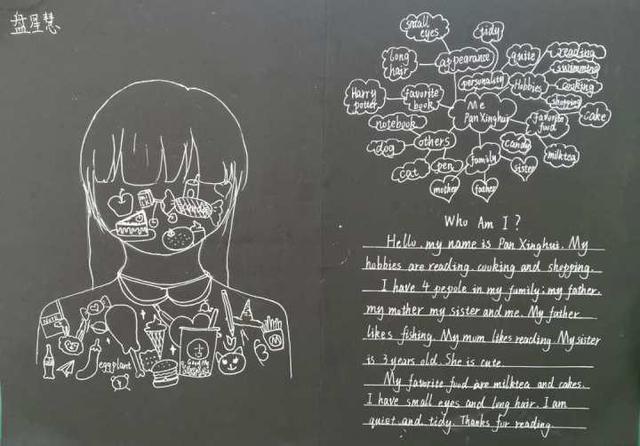 盘星慧
small eyes
tidy
long hair
appearance
quite
reading
swimming
personality
Hobbies
cooking
shopping
Harry Potter
Favorite book
Me
Pan Xinghui
Favorite food
cake
notebook
candy
milktea
dog
others
family
sister
cat
pen
mother
father
eggplant
Who Am I?
Hello, my name is Pan Xinghui. My
hobbies are reading, cooking and shopping.
I have 4 pepole in my family: my father,
my mother my sister and me. My father
likes fishing. My mum likes reading. My sister
is 3 years old. She is cute.
My favorite food are milktea and cakes.
I have small eyes and long hair. I am
quiet and tidy. Thanks for reading.